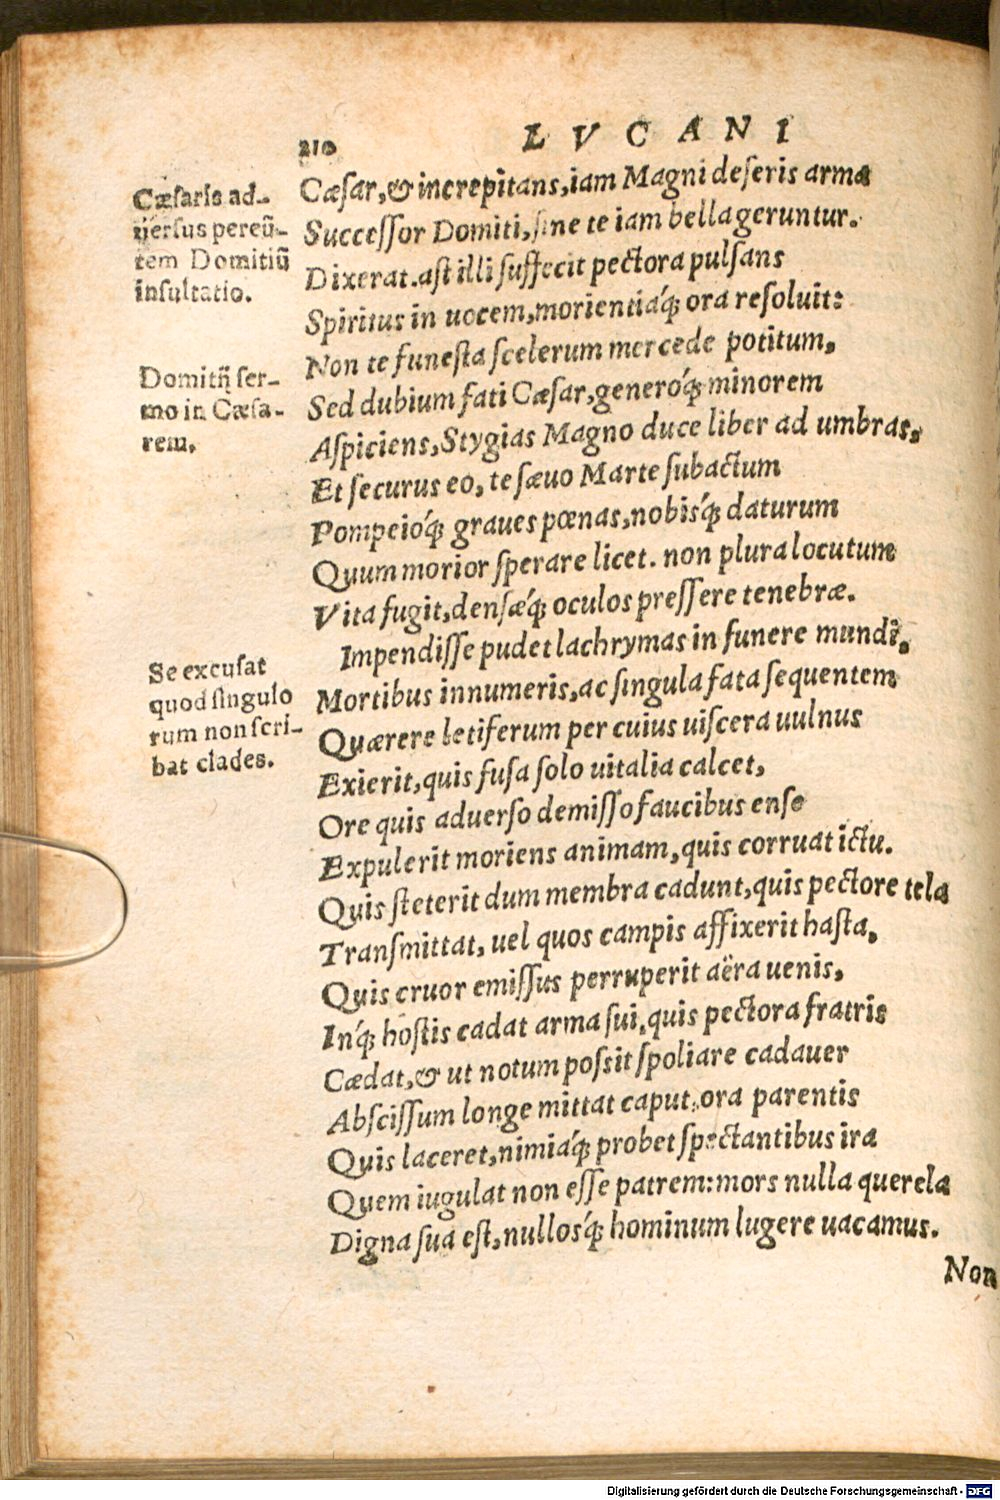 210 LVCANI
Cæsaris ad-
uersus pereũ-
tem Domitiũ
insultatio.
Cæſar,& increpitans,iam Magni deſeris arma
Succeſſor Domiti,ſine te iam bella geruntur.
Dixerat.aſt illi ſuffecit pectora pulſans
Spiritus in uocem,morientiáq́; ora reſoluit:
Non te funeſta ſcelerum mercede potitum,
Domitij ser-
mo in Cæsa-
rem.
Sed dubium fati Cæſar,generóq́; minorem
Aſpiciens,Stygias Magno duce liber ad umbras,
Et ſecurus eo, te ſæuo Marte ſubactum
Pompeióq́; graues pœnas,nobisq́; daturum
Quum morior ſperare licet. non plura locutum
Vita fugit,denſæq́; oculos preſſere tenebræ.
Impendiſſe pudet lachrymas in funere mundi,
Se excusat
quod singulo
rum non scri-
bat clades.
Mortibus innumeris,ac ſingula fata ſequentem
Quærere letiferum per cuius uiſcera uulnus
Exierit,quis fuſa ſolo uitalia calcet,
Ore quis aduerſo demiſſo faucibus enſe
Expulerit moriens animam,quis corruat ictu.
Quis ſteterit dum membra cadunt,quis pectore tela
Tranſmittat, uel quos campis affixerit haſta,
Quis cruor emiſſus perruperit aëra uenis,
Inq́; hoſtis cadat arma ſui,quis pectora fratris
Cædat,& ut notum poſsit ſpoliare cadauer
Abſciſſum longe mittat caput,ora parentis
Quis laceret,nimiáq́; probet ſpectantibus ira
Quem iugulat non eſſe patrem:mors nulla querela
Digna ſua eſt,nullosq́; hominum lugere uacamus.
Non
Digitalisierung gefördert durch die Deutsche Forschungsgemeinschaft - DFG